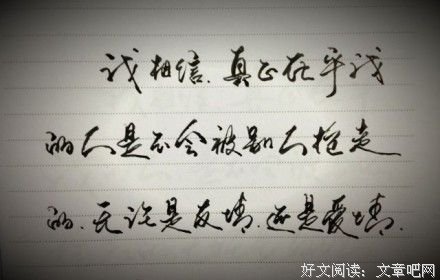 我相信.真正在乎我
的人是不会被别人抢走
的.无论是友情.还是爱情.
好文阅读：文章吧网